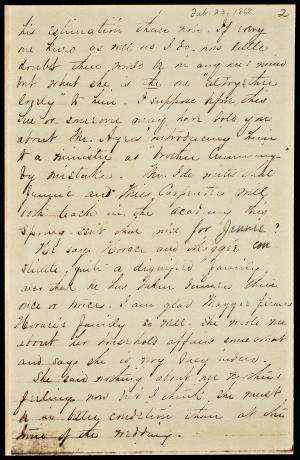 Feb. 23, 1868
2
his estimation than now. If every
one knew as well as I do, how little
doubt there would be in any one's mind
but what she is the one "altogether
lovely" to him. I suppose before this
Sue or someone may have told you
about Mr. Ayres' introducing him
to a minister as "brother Cummings"
by mistake. Mr. Ide writes that
Jennie and Miss Carpenter will
both teach in the academy this
spring. isn't that nice for Jennie?
He says Horace and Maggie con
stitute, quite a dignified family
and that he has taken dinner there
once or twice. I am glad Maggie pleases
Horace's family so well. She wrote me
about her household affairs somewhat
and says she is very busy indeed.
She said nothing about her mother's
feelings now, but I think she must
be in better condition than at the
time of the wedding.